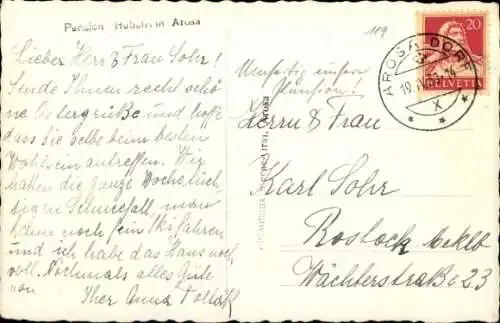 Pension Hubelin in Arosa
Lieber Herr & Frau Sohr!
Sende Ihnen recht schö
ne Ostergrüße und hoffe
dass sie selbe im besten
Wohlsein antreffen. Wir
hatten die ganze Woche tüch
tigen Schneefall, man
kann noch fein Skifahren
und ich habe das Haus noch
voll. Nochmals alles Gute
von Ihrer Anna
109
Umseitig unsere
Pension!
Herrn & Frau
Karl Sohr
Rostock Meklb
Wächterstraße 23
20
HELVETIA
AROSA DORF
X